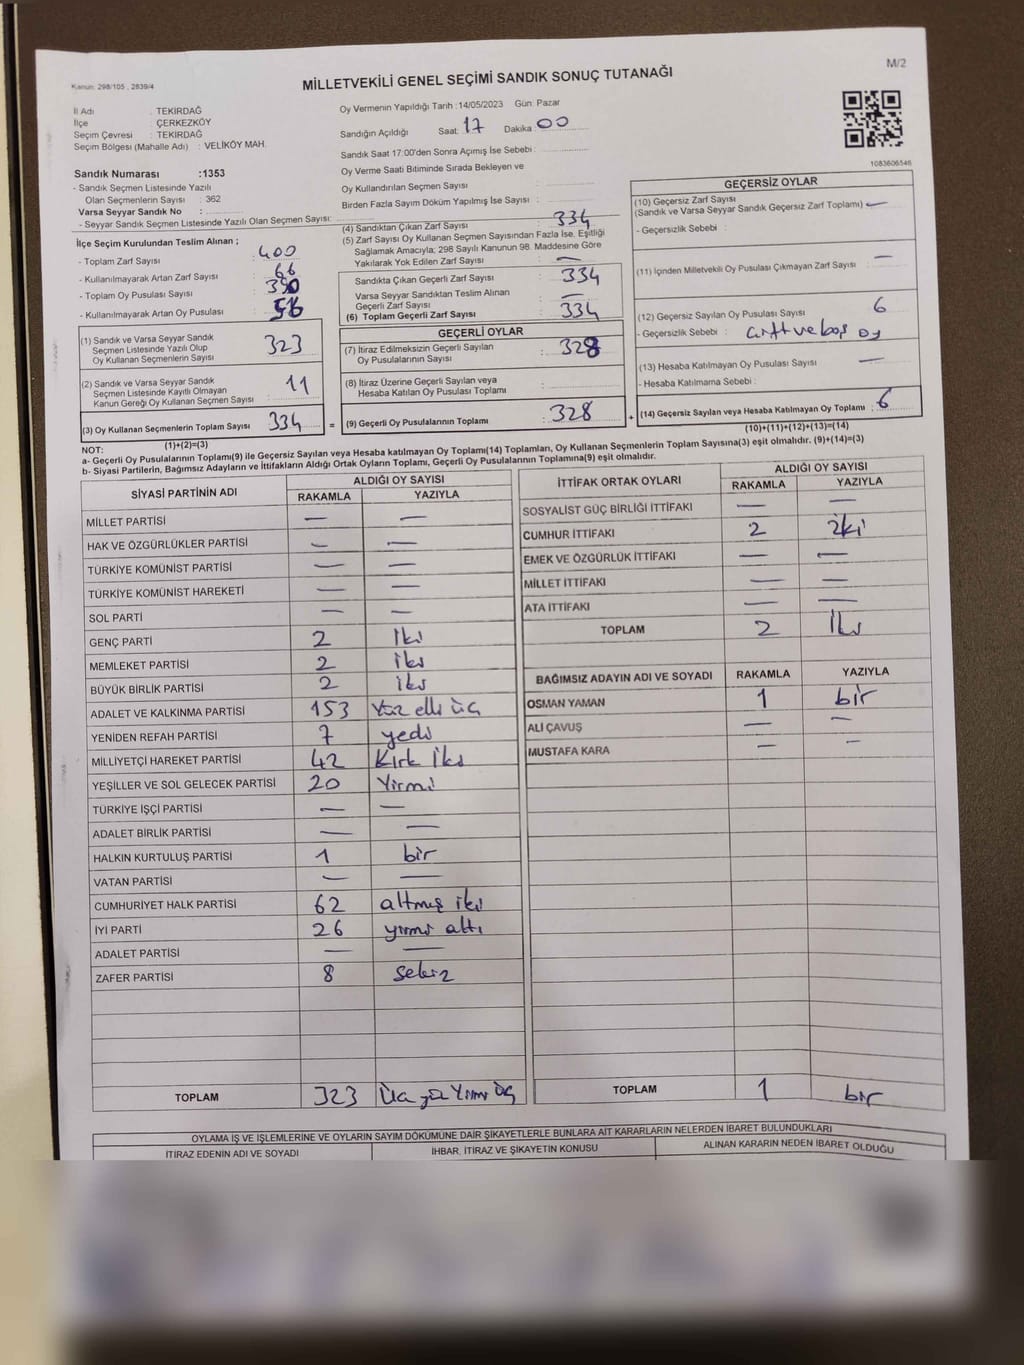 Kanun: 298/105 , 2839/4
MİLLETVEKİLİ GENEL SEÇİMİ SANDIK SONUÇ TUTANAĞI
M/2
İl Adı : TEKİRDAĞ
İlçe : ÇERKEZKÖY
Seçim Çevresi : TEKİRDAĞ
Seçim Bölgesi (Mahalle Adı) : VELİKÖY MAH.
Sandık Numarası :1353
- Sandık Seçmen Listesinde Yazılı
Olan Seçmenlerin Sayısı : 362
Varsa Seyyar Sandık No :
- Seyyar Sandık Seçmen Listesinde Yazılı Olan Seçmen Sayısı:
İlçe Seçim Kurulundan Teslim Alınan ;
- Toplam Zarf Sayısı : 400
- Kullanılmayarak Artan Zarf Sayısı : 66
- Toplam Oy Pusulası Sayısı :
- Kullanılmayarak Artan Oy Pusulası :
(1) Sandık ve Varsa Seyyar Sandık
Seçmen Listesinde Yazılı Olup
Oy Kullanan Seçmenlerin Sayısı : 323
(2) Sandık ve Varsa Seyyar Sandık
Seçmen Listesinde Kayıtlı Olmayan
Kanun Gereği Oy Kullanan Seçmen Sayısı : 11
(3) Oy Kullanan Seçmenlerin Toplam Sayısı : 334
(1)+(2)=(3)
Oy Vermenin Yapıldığı Tarih :14/05/2023 Gün: Pazar
Sandığın Açıldığı Saat: 17 Dakika: 00
Sandık Saat 17:00'den Sonra Açımış İse Sebebi :
Oy Verme Saati Bitiminde Sırada Bekleyen ve
Oy Kullandırılan Seçmen Sayısı :
Birden Fazla Sayım Döküm Yapılmış İse Sayısı :
(4) Sandıktan Çıkan Zarf Sayısı : 334
(5) Zarf Sayısı Oy Kullanan Seçmen Sayısından Fazla İse, Eşitliği
Sağlamak Amacıyla; 298 Sayılı Kanunun 98. Maddesine Göre
Yakılarak Yok Edilen Zarf Sayısı : —
Sandıkta Çıkan Geçerli Zarf Sayısı : 334
Varsa Seyyar Sandıktan Teslim Alınan
Geçerli Zarf Sayısı : —
(6) Toplam Geçerli Zarf Sayısı : 334
GEÇERLİ OYLAR
(7) İtiraz Edilmeksizin Geçerli Sayılan
Oy Pusulalarının Sayısı : 328
(8) İtiraz Üzerine Geçerli Sayılan veya
Hesaba Katılan Oy Pusulası Toplamı :
= (9) Geçerli Oy Pusulalarının Toplamı : 328 +
1083606546
GEÇERSİZ OYLAR
(10) Geçersiz Zarf Sayısı
(Sandık ve Varsa Seyyar Sandık Geçersiz Zarf Toplamı) : —
- Geçersizlik Sebebi :
(11) İçinden Milletvekili Oy Pusulası Çıkmayan Zarf Sayısı : —
(12) Geçersiz Sayılan Oy Pusulası Sayısı : 6
- Geçersizlik Sebebi : çift ve boş oy
(13) Hesaba Katılmayan Oy Pusulası Sayısı : —
- Hesaba Katılmama Sebebi :
(14) Geçersiz Sayılan veya Hesaba Katılmayan Oy Toplamı : 6
(10)+(11)+(12)+(13)=(14)
NOT:
a- Geçerli Oy Pusulalarının Toplamı(9) ile Geçersiz Sayılan veya Hesaba katılmayan Oy Toplamı(14) Toplamları, Oy Kullanan Seçmenlerin Toplam Sayısına(3) eşit olmalıdır. (9)+(14)=(3)
b- Siyasi Partilerin, Bağımsız Adayların ve İttifakların Aldığı Ortak Oyların Toplamı, Geçerli Oy Pusulalarının Toplamına(9) eşit olmalıdır.
SİYASİ PARTİNİN ADI ALDIĞI OY SAYISI
RAKAMLA YAZIYLA
MİLLET PARTİSİ — —
HAK VE ÖZGÜRLÜKLER PARTİSİ — —
TÜRKİYE KOMÜNİST PARTİSİ — —
TÜRKİYE KOMÜNİST HAREKETİ — —
SOL PARTİ — —
GENÇ PARTİ 2 iki
MEMLEKET PARTİSİ 2 iki
BÜYÜK BİRLİK PARTİSİ 2 iki
ADALET VE KALKINMA PARTİSİ 153 Yüz elli üç
YENİDEN REFAH PARTİSİ 7 yedi
MİLLİYETÇİ HAREKET PARTİSİ 42 Kırk iki
YEŞİLLER VE SOL GELECEK PARTİSİ 20 Yirmi
TÜRKİYE İŞÇİ PARTİSİ — —
ADALET BİRLİK PARTİSİ — —
HALKIN KURTULUŞ PARTİSİ 1 bir
VATAN PARTİSİ — —
CUMHURİYET HALK PARTİSİ 62 altmış iki
İYİ PARTİ 26 yirmi altı
ADALET PARTİSİ — —
ZAFER PARTİSİ 8 sekiz
TOPLAM 323 Üç yüz Yirmi üç
İTTİFAK ORTAK OYLARI ALDIĞI OY SAYISI
RAKAMLA YAZIYLA
SOSYALİST GÜÇ BİRLİĞİ İTTİFAKI — —
CUMHUR İTTİFAKI 2 iki
EMEK VE ÖZGÜRLÜK İTTİFAKI — —
MİLLET İTTİFAKI — —
ATA İTTİFAKI — —
TOPLAM 2 İki
BAĞIMSIZ ADAYIN ADI VE SOYADI RAKAMLA YAZIYLA
OSMAN YAMAN 1 bir
ALİ ÇAVUŞ — —
MUSTAFA KARA — —
TOPLAM 1 bir
OYLAMA İŞ VE İŞLEMLERİNE VE OYLARIN SAYIM DÖKÜMÜNE DAİR ŞİKAYETLERLE BUNLARA AİT KARARLARIN NELERDEN İBARET BULUNDUKLARI
İTİRAZ EDENİN ADI VE SOYADI İHBAR, İTİRAZ VE ŞİKAYETİN KONUSU ALINAN KARARIN NEDEN İBARET OLDUĞU